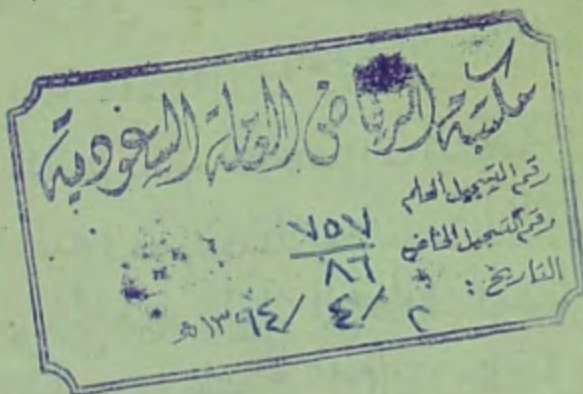 مكتبة الرياض العامة السعودية
رقم التسجيل العام
رقم التسجيل الخاص ٧٥٧/٨٦
التاريخ : ٢ / ٤ / ١٣٩٤هـ